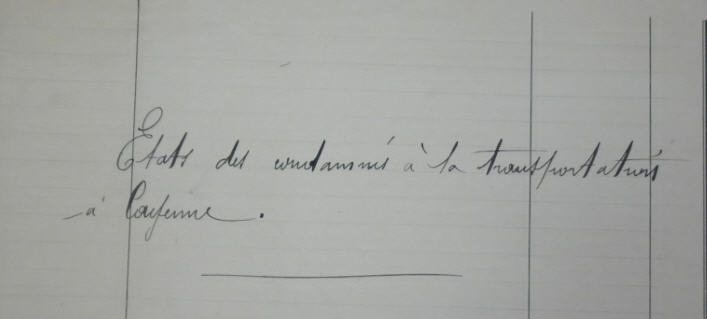 Etats des condamnés à la transportation
à Cayenne.